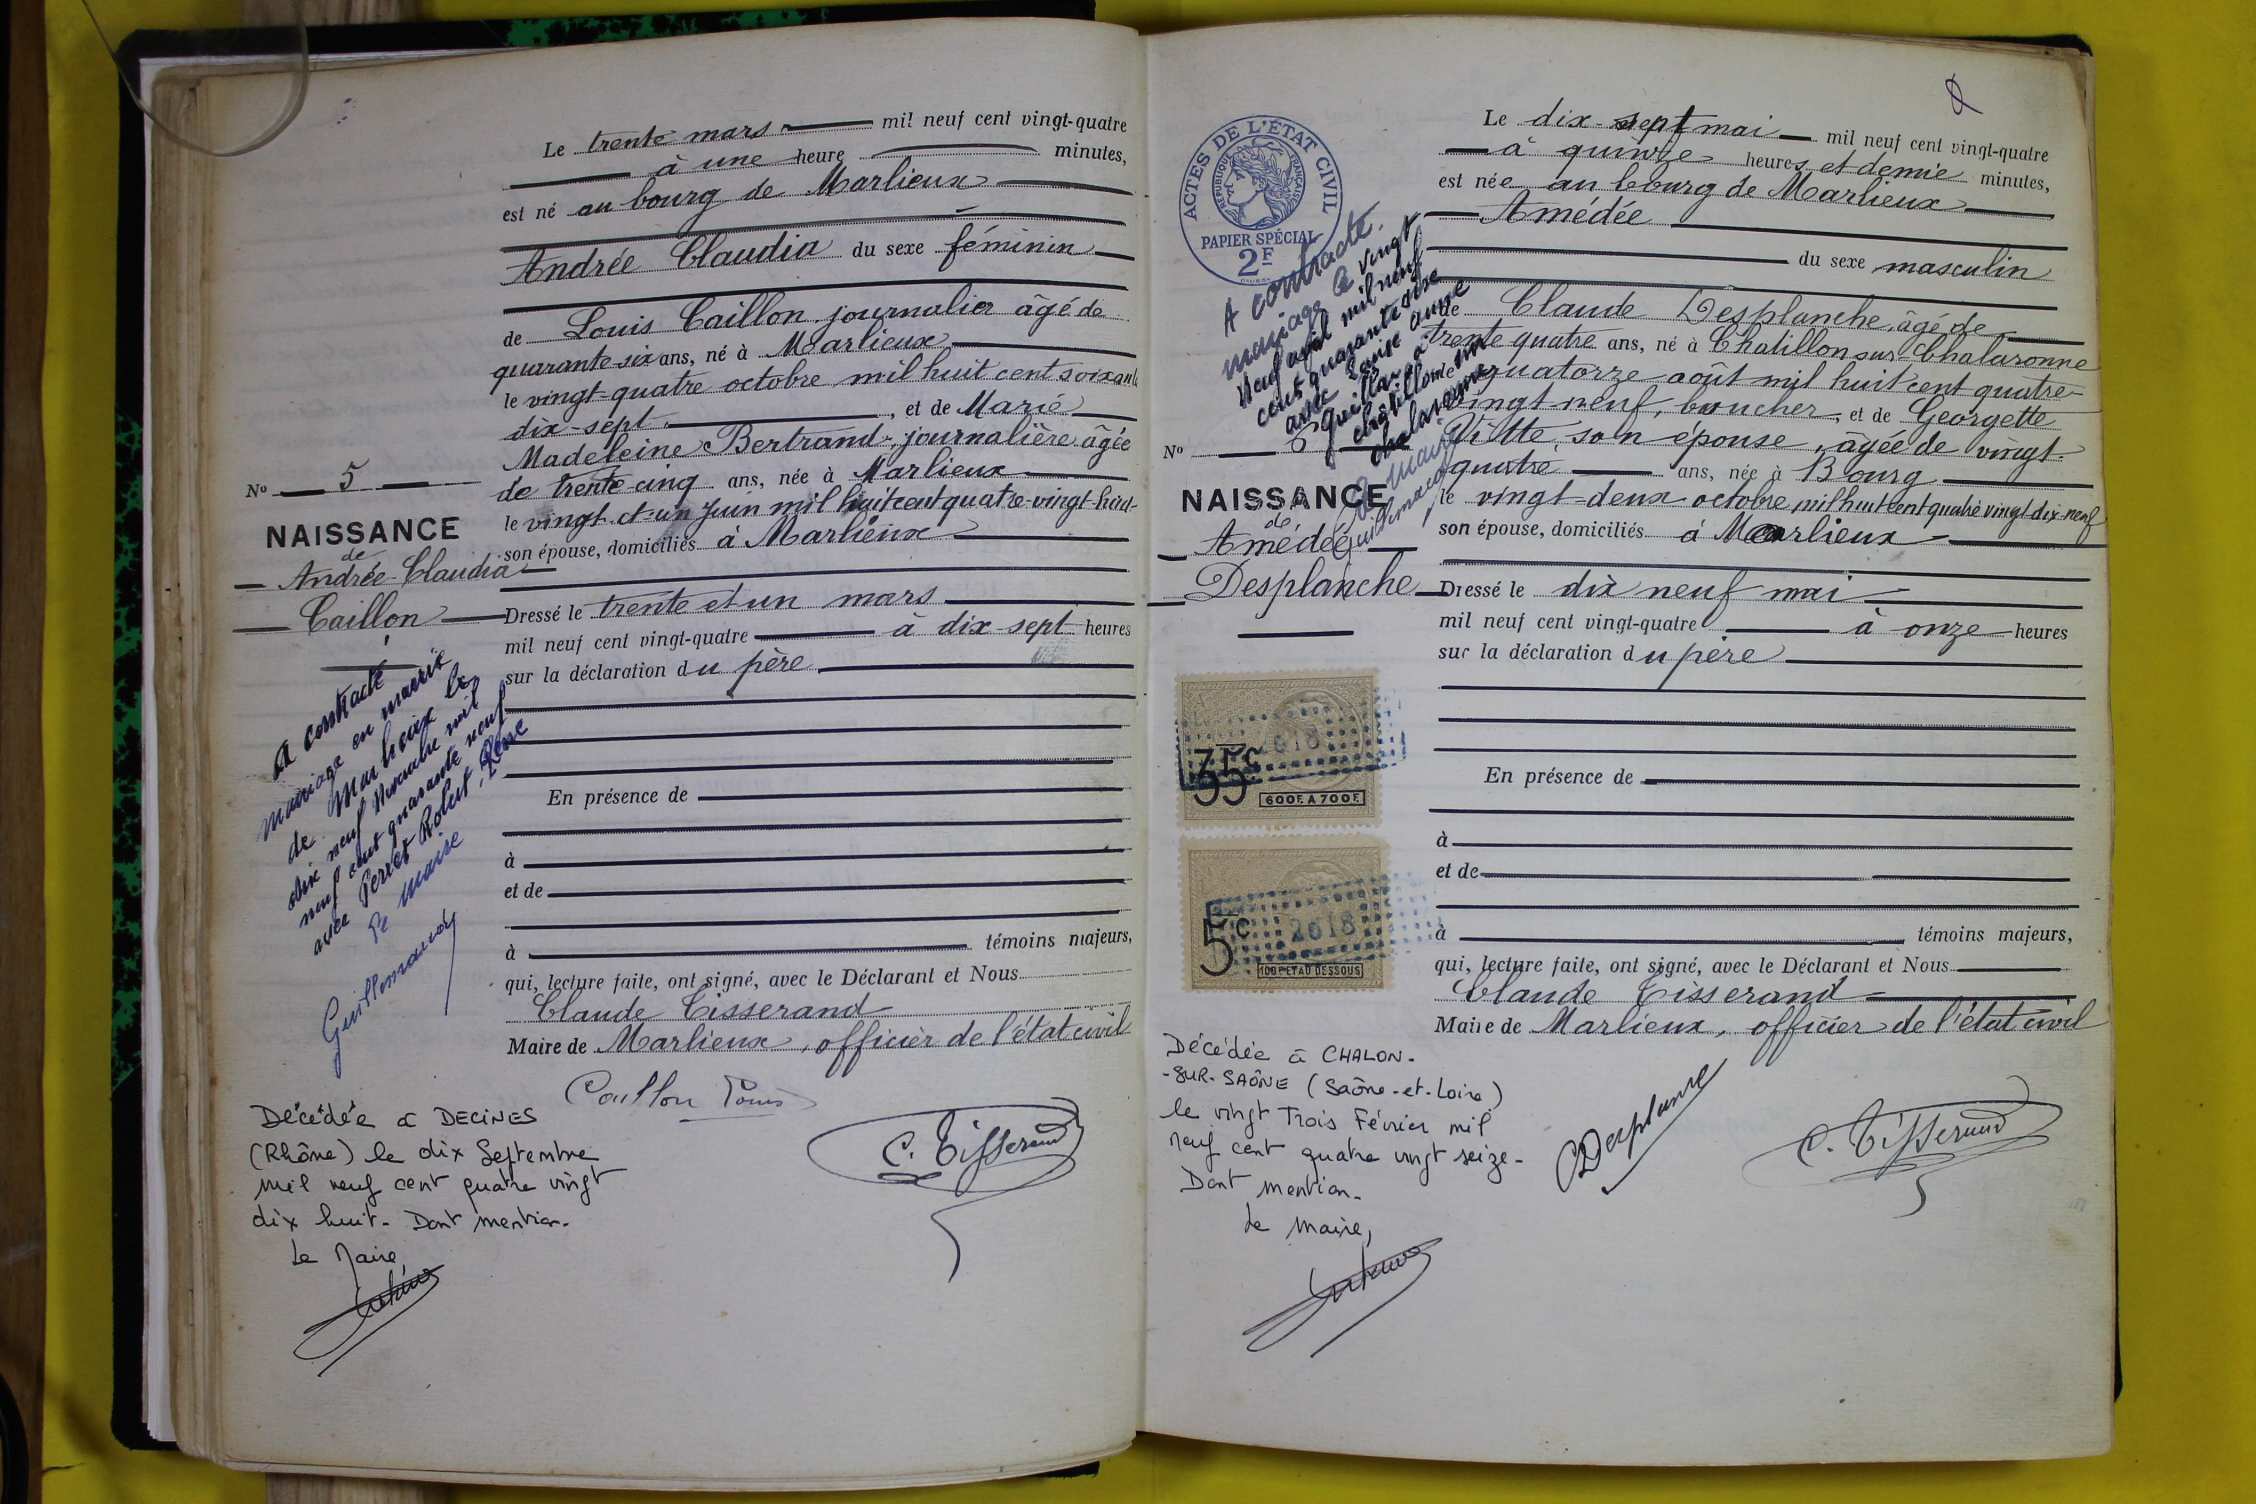 Le trente mars mil neuf cent vingt-quatre
à une heure minutes,
est né au bourg de Marlieux
Andrée Claudia du sexe féminin
de Louis Caillon journalier âgé de
quarante-six ans, né à Marlieux
le vingt-quatre octobre mil huit cent soixante
dix-sept, et de Marie
Madeleine Bertrand, journalière âgée
de trente-cinq ans, née à Marlieux
le vingt-et-un juin mil huit cent quatre-vingt-huit
son épouse, domiciliés à Marlieux
Dressé le trente et un mars
mil neuf cent vingt-quatre à dix-sept heures
sur la déclaration du père
En présence de
à
et de
à témoins majeurs,
qui, lecture faite, ont signé, avec le Déclarant et Nous
Claude Tisserand
Maire de Marlieux, officier de l'état civil
Caillon Louis
C. Tisserand
No 5
NAISSANCE
de
Andrée-Claudia
Caillon
A contracté
mariage en mairie
de Marlieux le
dix neuf novembre mil
neuf cent quarante neuf
avec Perret Robert, René
Le maire
Guillemaud
Décédée à DECINES
(Rhône) le dix Septembre
mil neuf cent quatre vingt
dix huit. Dont mention.
Le Maire,
ACTES DE L'ÉTAT CIVIL
RÉPUBLIQUE FRANÇAISE
PAPIER SPÉCIAL
2F
A contracté
mariage le vingt
neuf avril mil neuf
cent quarante
avec Louise
à
châtillon sur
chalaronne
Le maire
Guillemaud
No 6
NAISSANCE
de
Amédée
Desplanche
35c
2618
600F. A 700F.
5c
2618
100F ET AU DESSOUS
Décédée à CHALON-
-SUR-SAÔNE (Saône-et-Loire)
le vingt Trois Février mil
neuf cent quatre vingt seize-
Dont mention-
Le Maire,
Le dix-sept mai mil neuf cent vingt-quatre
à quinze heures et demie minutes,
est née au bourg de Marlieux
Amédée
du sexe masculin
de Claude Desplanche, âgé de
trente quatre ans, né à Chatillon sur Chalaronne
le quatorze août mil huit cent quatre-
vingt-neuf, boucher, et de Georgette
Vitte son épouse, agée de vingt-
quatre ans, née à Bourg
le vingt-deux octobre mil huit cent quatre vingt dix-neuf
son épouse, domiciliés à Marlieux
Dressé le dix neuf mai
mil neuf cent vingt-quatre à onze heures
sur la déclaration du père
En présence de
à
et de
à témoins majeurs,
qui, lecture faite, ont signé, avec le Déclarant et Nous
Claude Tisserand
Maire de Marlieux, officier de l'état civil
C Desplanche
C. Tisserand